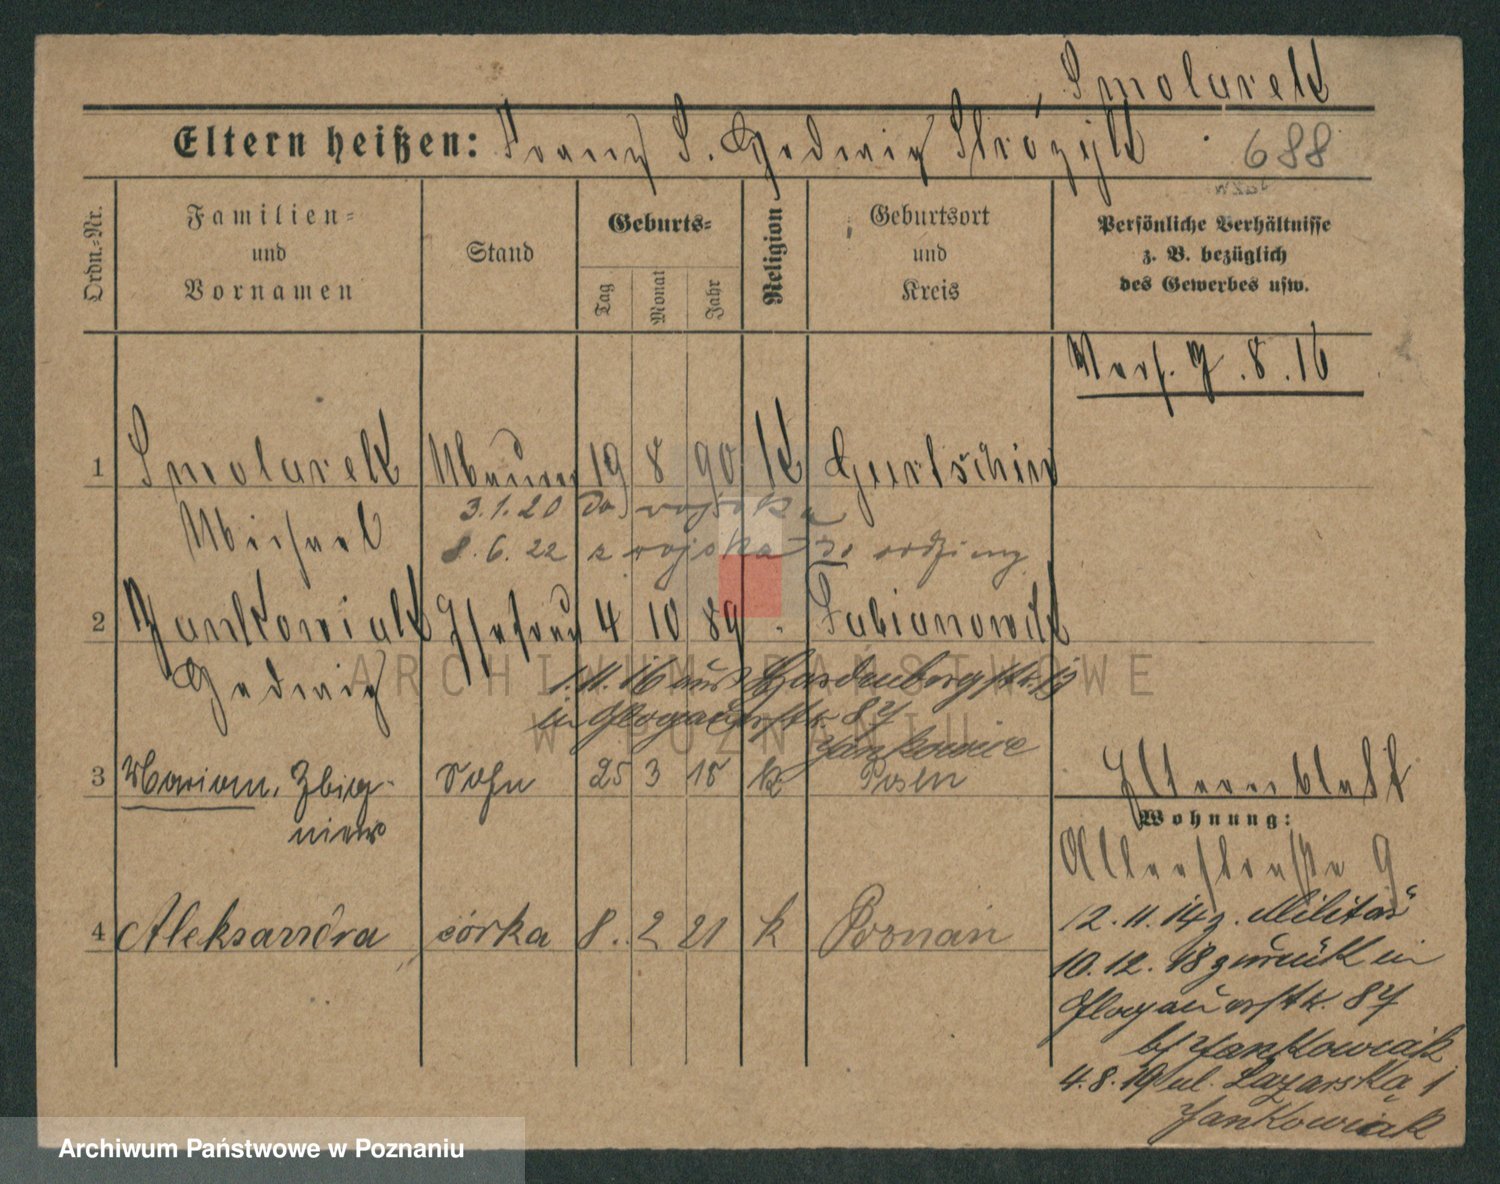 Smolarek
Eltern heißen: Franz S. Hedwig Strózyk
688
Ordn.-Nr.
Familien-
und
Vornamen
Stand
Geburts-
Tag
Monat
Jahr
Religion
Geburtsort
und
Kreis
Persönliche Verhältnisse
z. B. bezüglich
des Gewerbes usw.
Verh. 9.8.16
1 Smolarek Maurer 19 8 90 K Gurtschin
Michael
3.1.20 do wojska
8.6.22 z wojska do rodziny
2 Jankowiak Ehefrau 4 10 89 Fabianowo
Hedwig
1.11.16 aus Hardenbergstr. 19
in Glogauerstr. 87
3 Marian, Zbig-
niew
Sohn 25 3 18 k Posen
Elternblatt
Wohnung:
4 Aleksandra córka 8. 2 21 k Poznań
12.11.14 z. Militär
10.12.18 zurück in
Glogauerstr. 87
b/ Jankowiak
4.8.19 ul. Łazarska 1
Jankowiak
ARCHIWUM PAŃSTWOWE
W POZNANIU
Archiwum Państwowe w Poznaniu